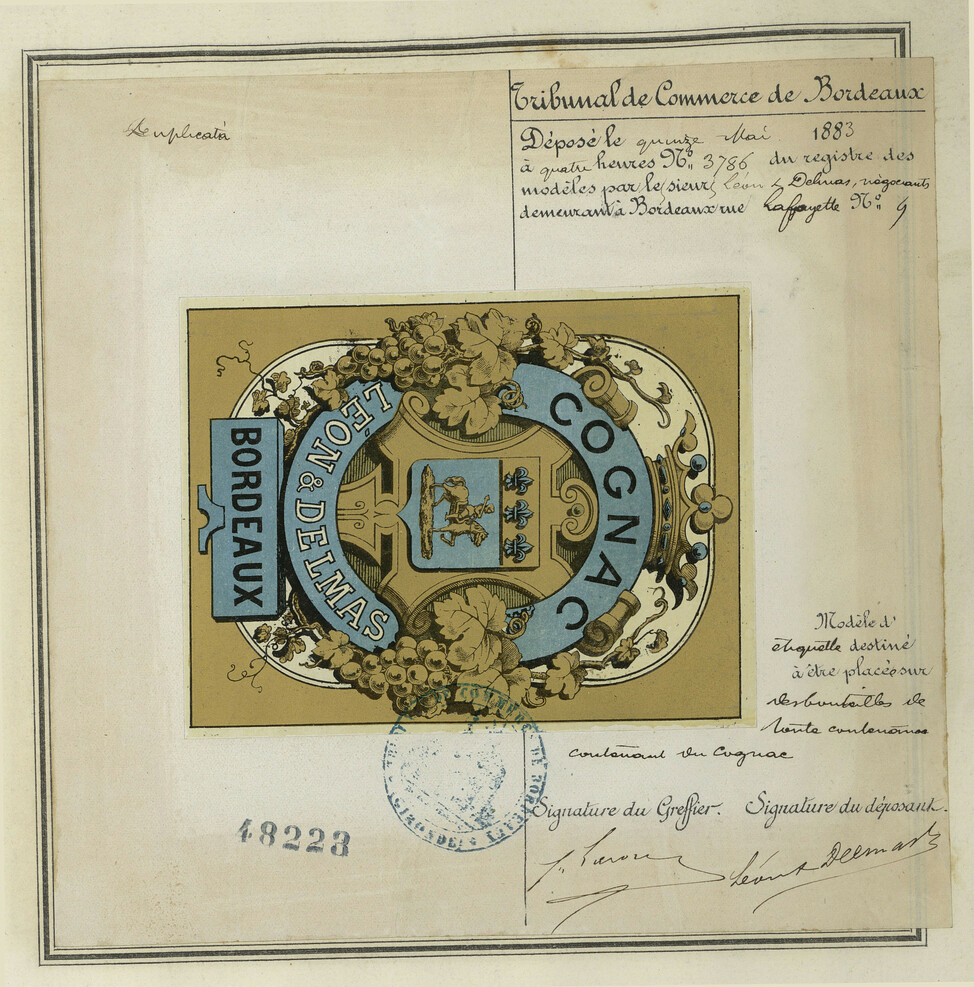 Duplicata
Tribunal de Commerce de Bordeaux
Déposé le quinze Mai 1883
à quatre heures Nº 3786 du registre des
modèles par le sieur Léon & Delmas, négociants
demeurant à Bordeaux rue Laffayette Nº 9
COGNAC
LÉON & DELMAS
BORDEAUX
Modèle d'
étiquette destiné
à être placée sur
des bouteilles de
toute contenance
contenant du Cognac
COMMERCE DE BORDEAUX
GIRONDE
Signature du Greffier. Signature du déposant.
Léon & Delmas
48223